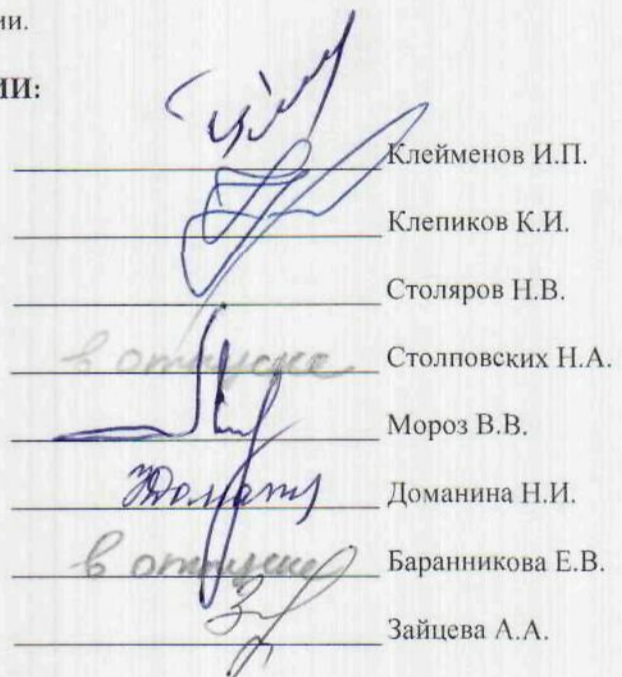 ии.
ИИ:
Клейменов И.П.
Клепиков К.И.
Столяров Н.В.
в отпуске Столповских Н.А.
Мороз В.В.
Доманина Н.И.
в отпуске Баранникова Е.В.
Зайцева А.А.